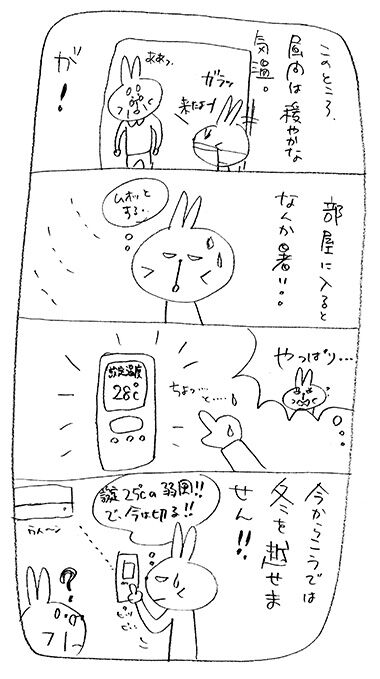 このところ、
昼間は穏やかな
気温。
ガラッ
来たよー
ああっ
が!
部屋に入ると
なんか暑い…
ムホッと
する…
やっぱり…
ちょっ…
と…
設定温度
28℃
今からこうでは
冬を越せま
せん!!
設定25℃の弱風!!
で、今は切る!!
ピッ
ピッ
?